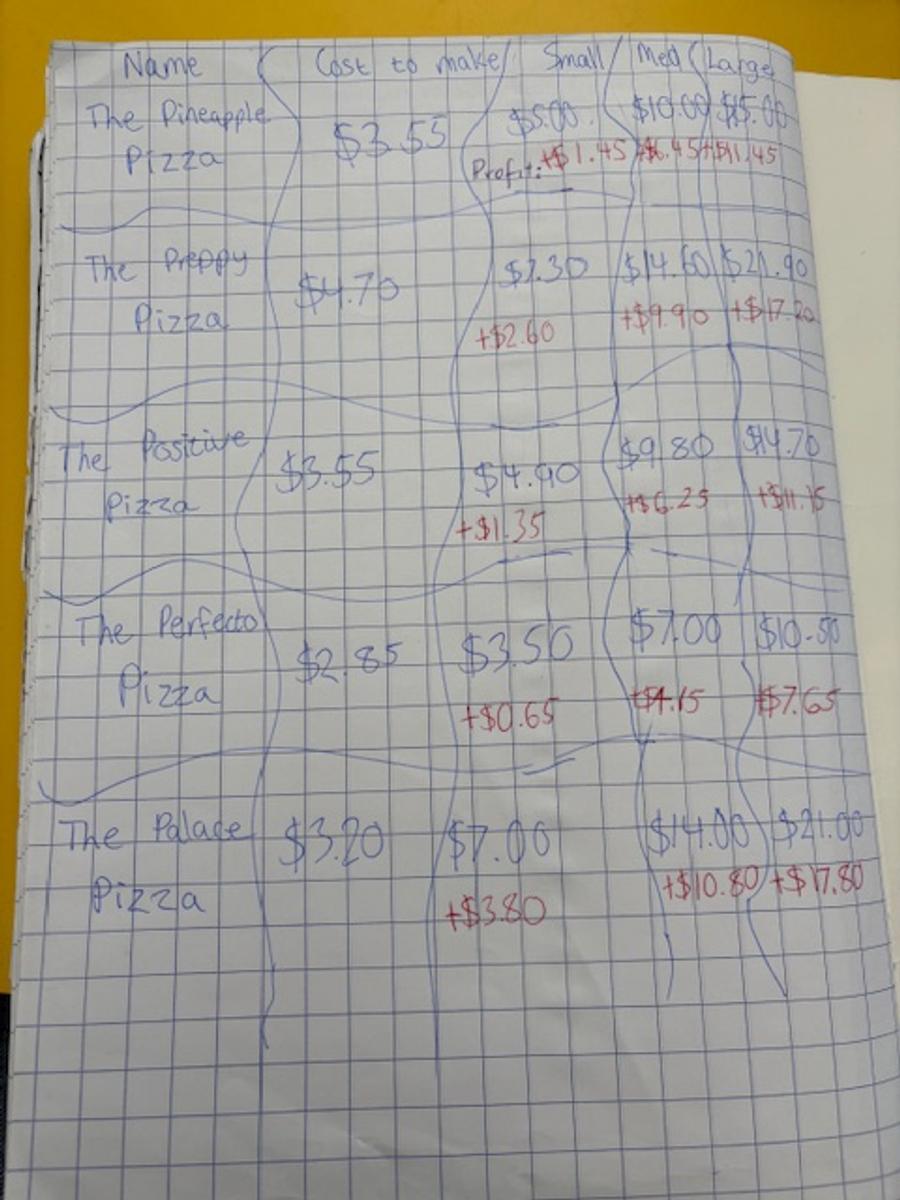 Name Cost to make Small Med Large
The Pineapple $3.55 $5.00 $10.00 $15.00
Pizza Profit: +$1.45 +$6.45 +$11.45
The Preppy $4.70 $7.30 $14.60 $21.90
Pizza +$2.60 +$9.90 +$17.20
The Positive $3.55 $4.90 $9.80 $14.70
Pizza +$1.35 +$6.25 +$11.15
The Perfecto $2.85 $3.50 $7.00 $10.50
Pizza +$0.65 +$4.15 +$7.65
The Palace $3.20 $7.00 $14.00 $21.00
Pizza +$3.80 +$10.80 +$17.80